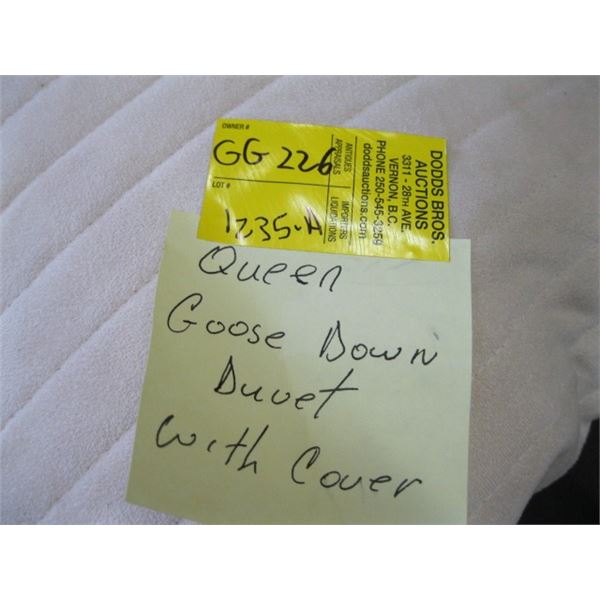 OWNER #
GG 226
LOT #
1235-A
ANTIQUES
APPRAISALS
IMPORTERS
LIQUIDATIONS
DODDS BROS.
AUCTIONS
3311 - 28TH AVE.
VERNON, B.C.
PHONE 250-545-3259
doddsauctions.com
Queen
Goose Down
Duvet
with Cover